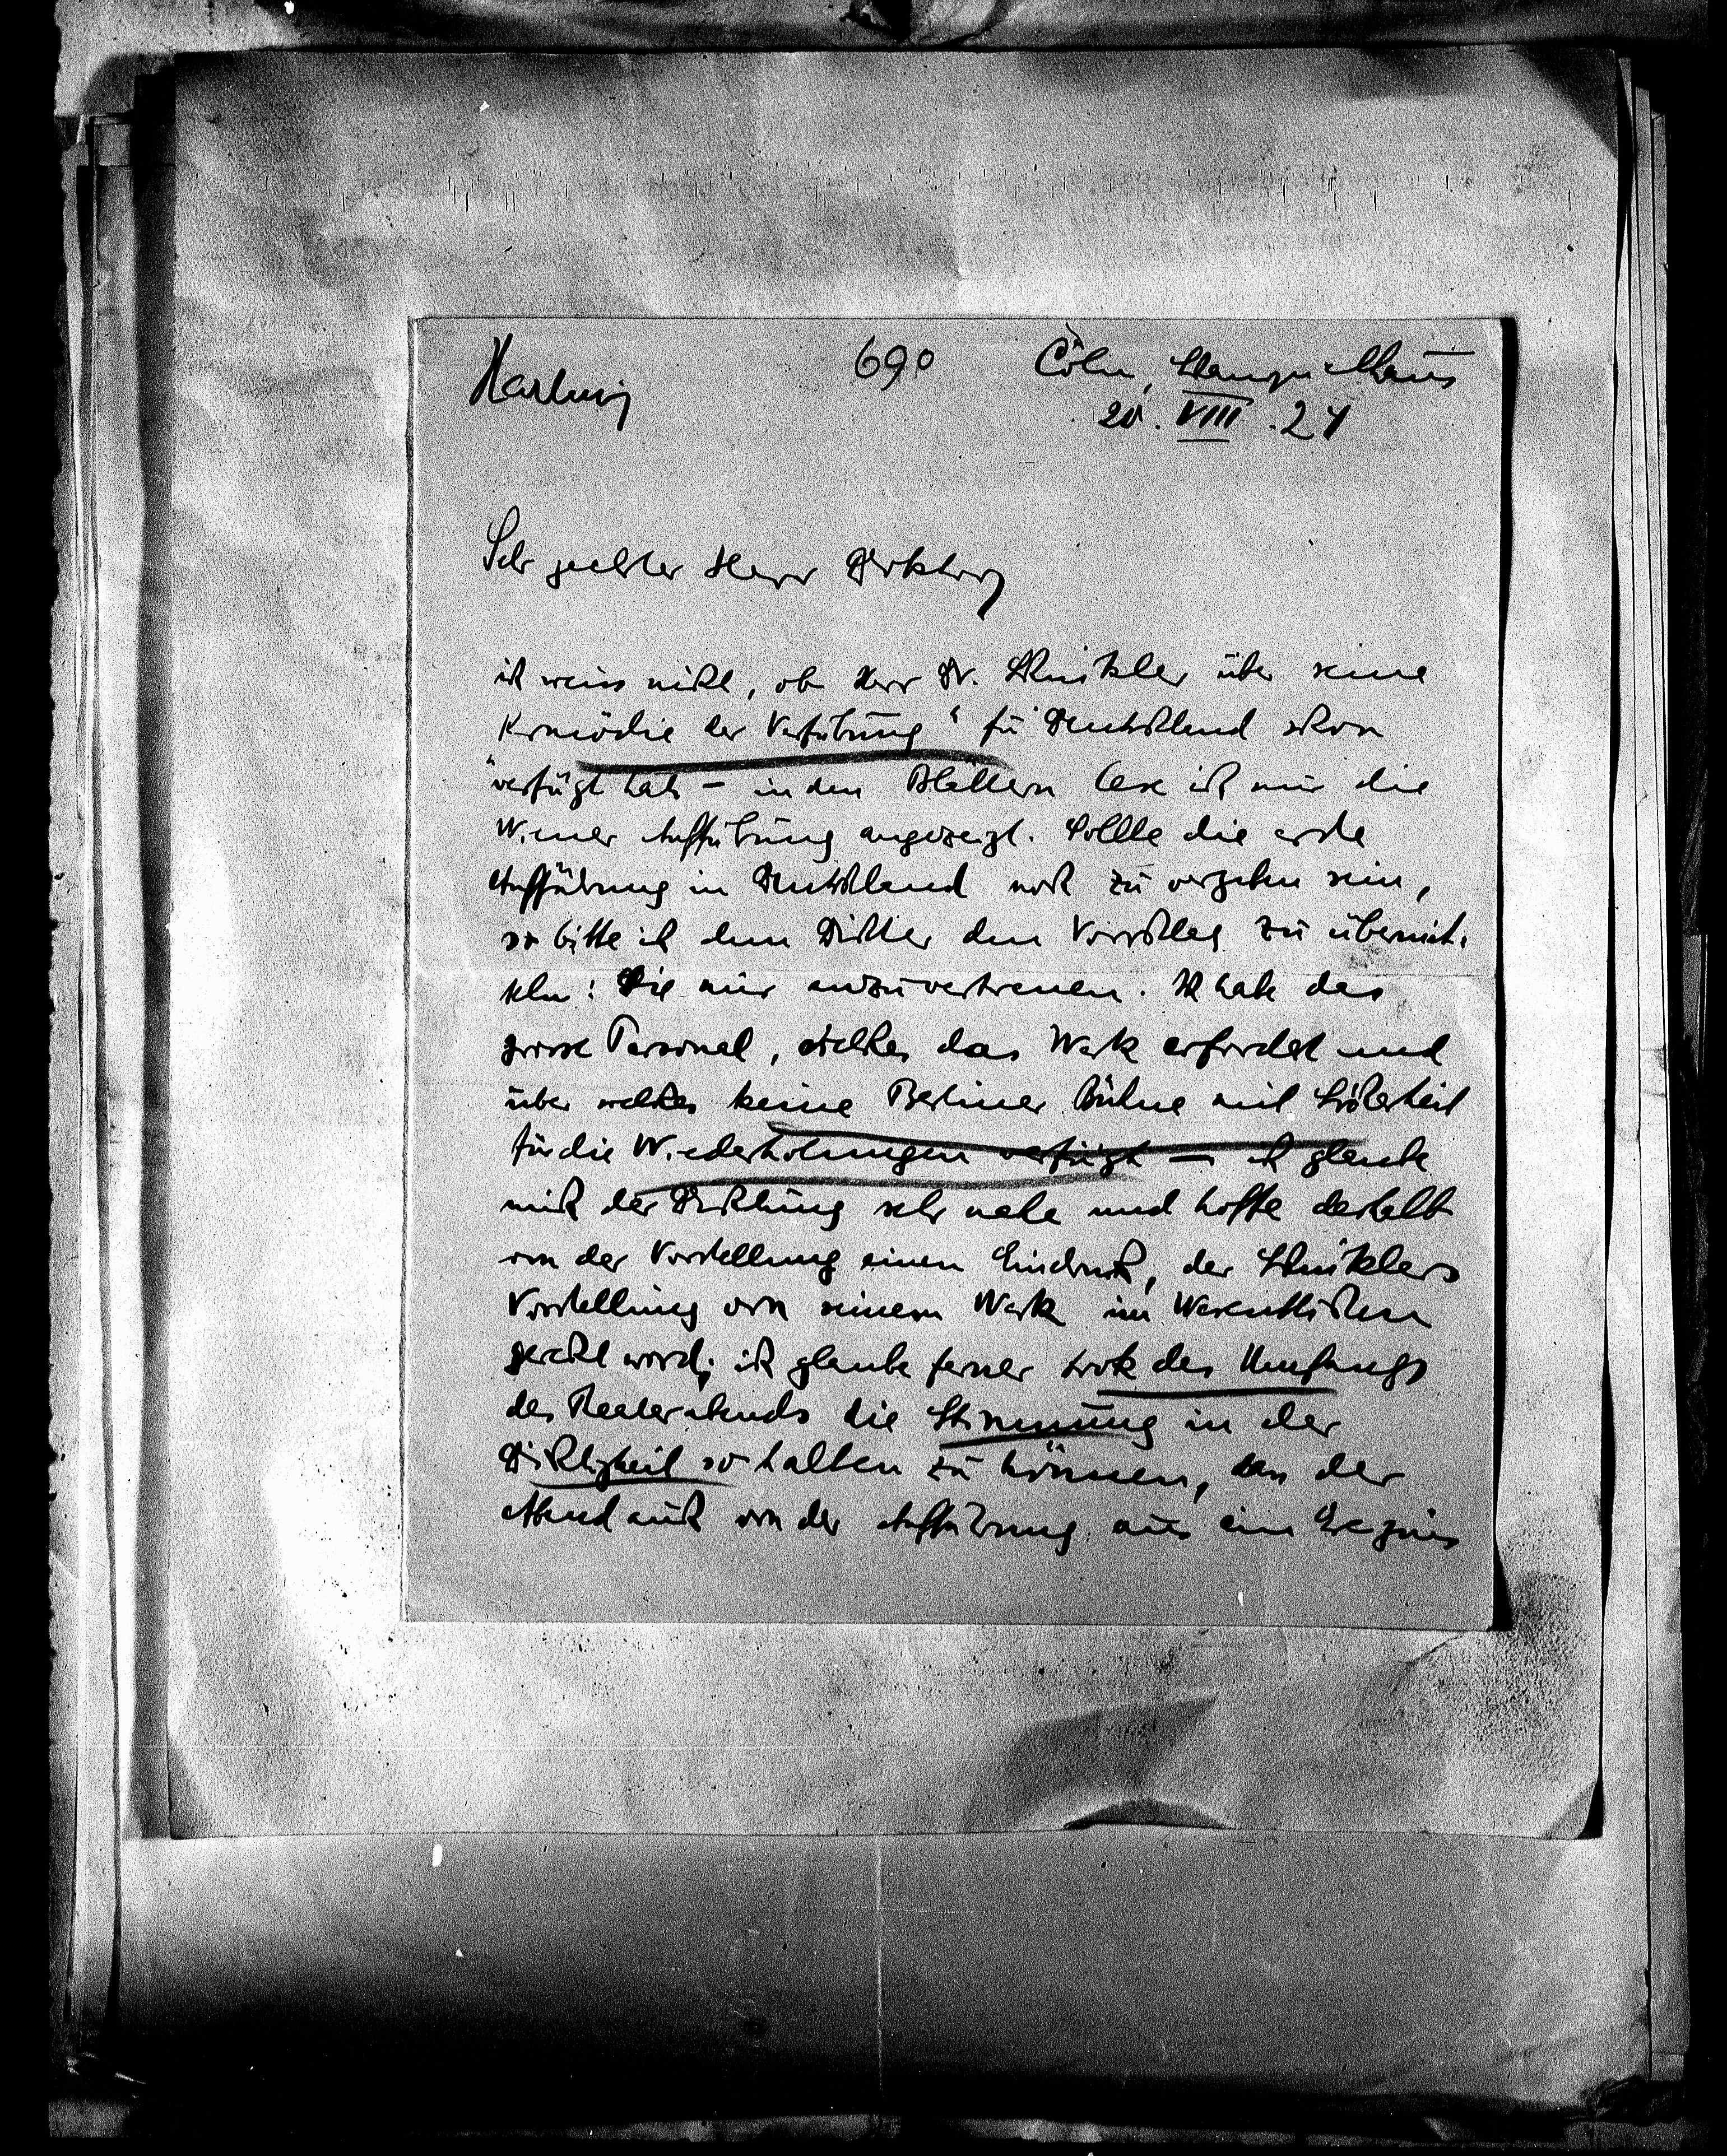 Hartung
690 Cöln, Schauspielhaus
20. VIII. 24
Sehr geehrter Herr Doktor,
ich weiss nicht, ob Herr Dr. Schnitzler über seine
„Komödie der Verführung“ für Deutschland schon
verfügt hat – in den Blättern lese ich nur die
Wiener Aufführung angezeigt. Sollte die erste
Aufführung in Deutschland noch zu vergeben sein,
so bitte ich dem Dichter den Vorschlag zu übermit-
teln: Sie mir anzuvertrauen. Ich habe das
grosse Personal, welches das Werk erfordert und
über welches keine Berliner Bühne mit Sicherheit
für die Wiederholungen verfügt – ich glaube
mich der Dichtung sehr nahe und hoffe deshalb
von der Vorstellung einen Eindruck, der Schnitzlers
Vorstellung von seinem Werk im Wesentlichen
gerecht wird; ich glaube ferner trotz des Umfangs
des Theaterabends die Stimmung in der
Dichtigkeit so halten zu können, dass der
Abend auch von der Aufführung aus ein Ereignis